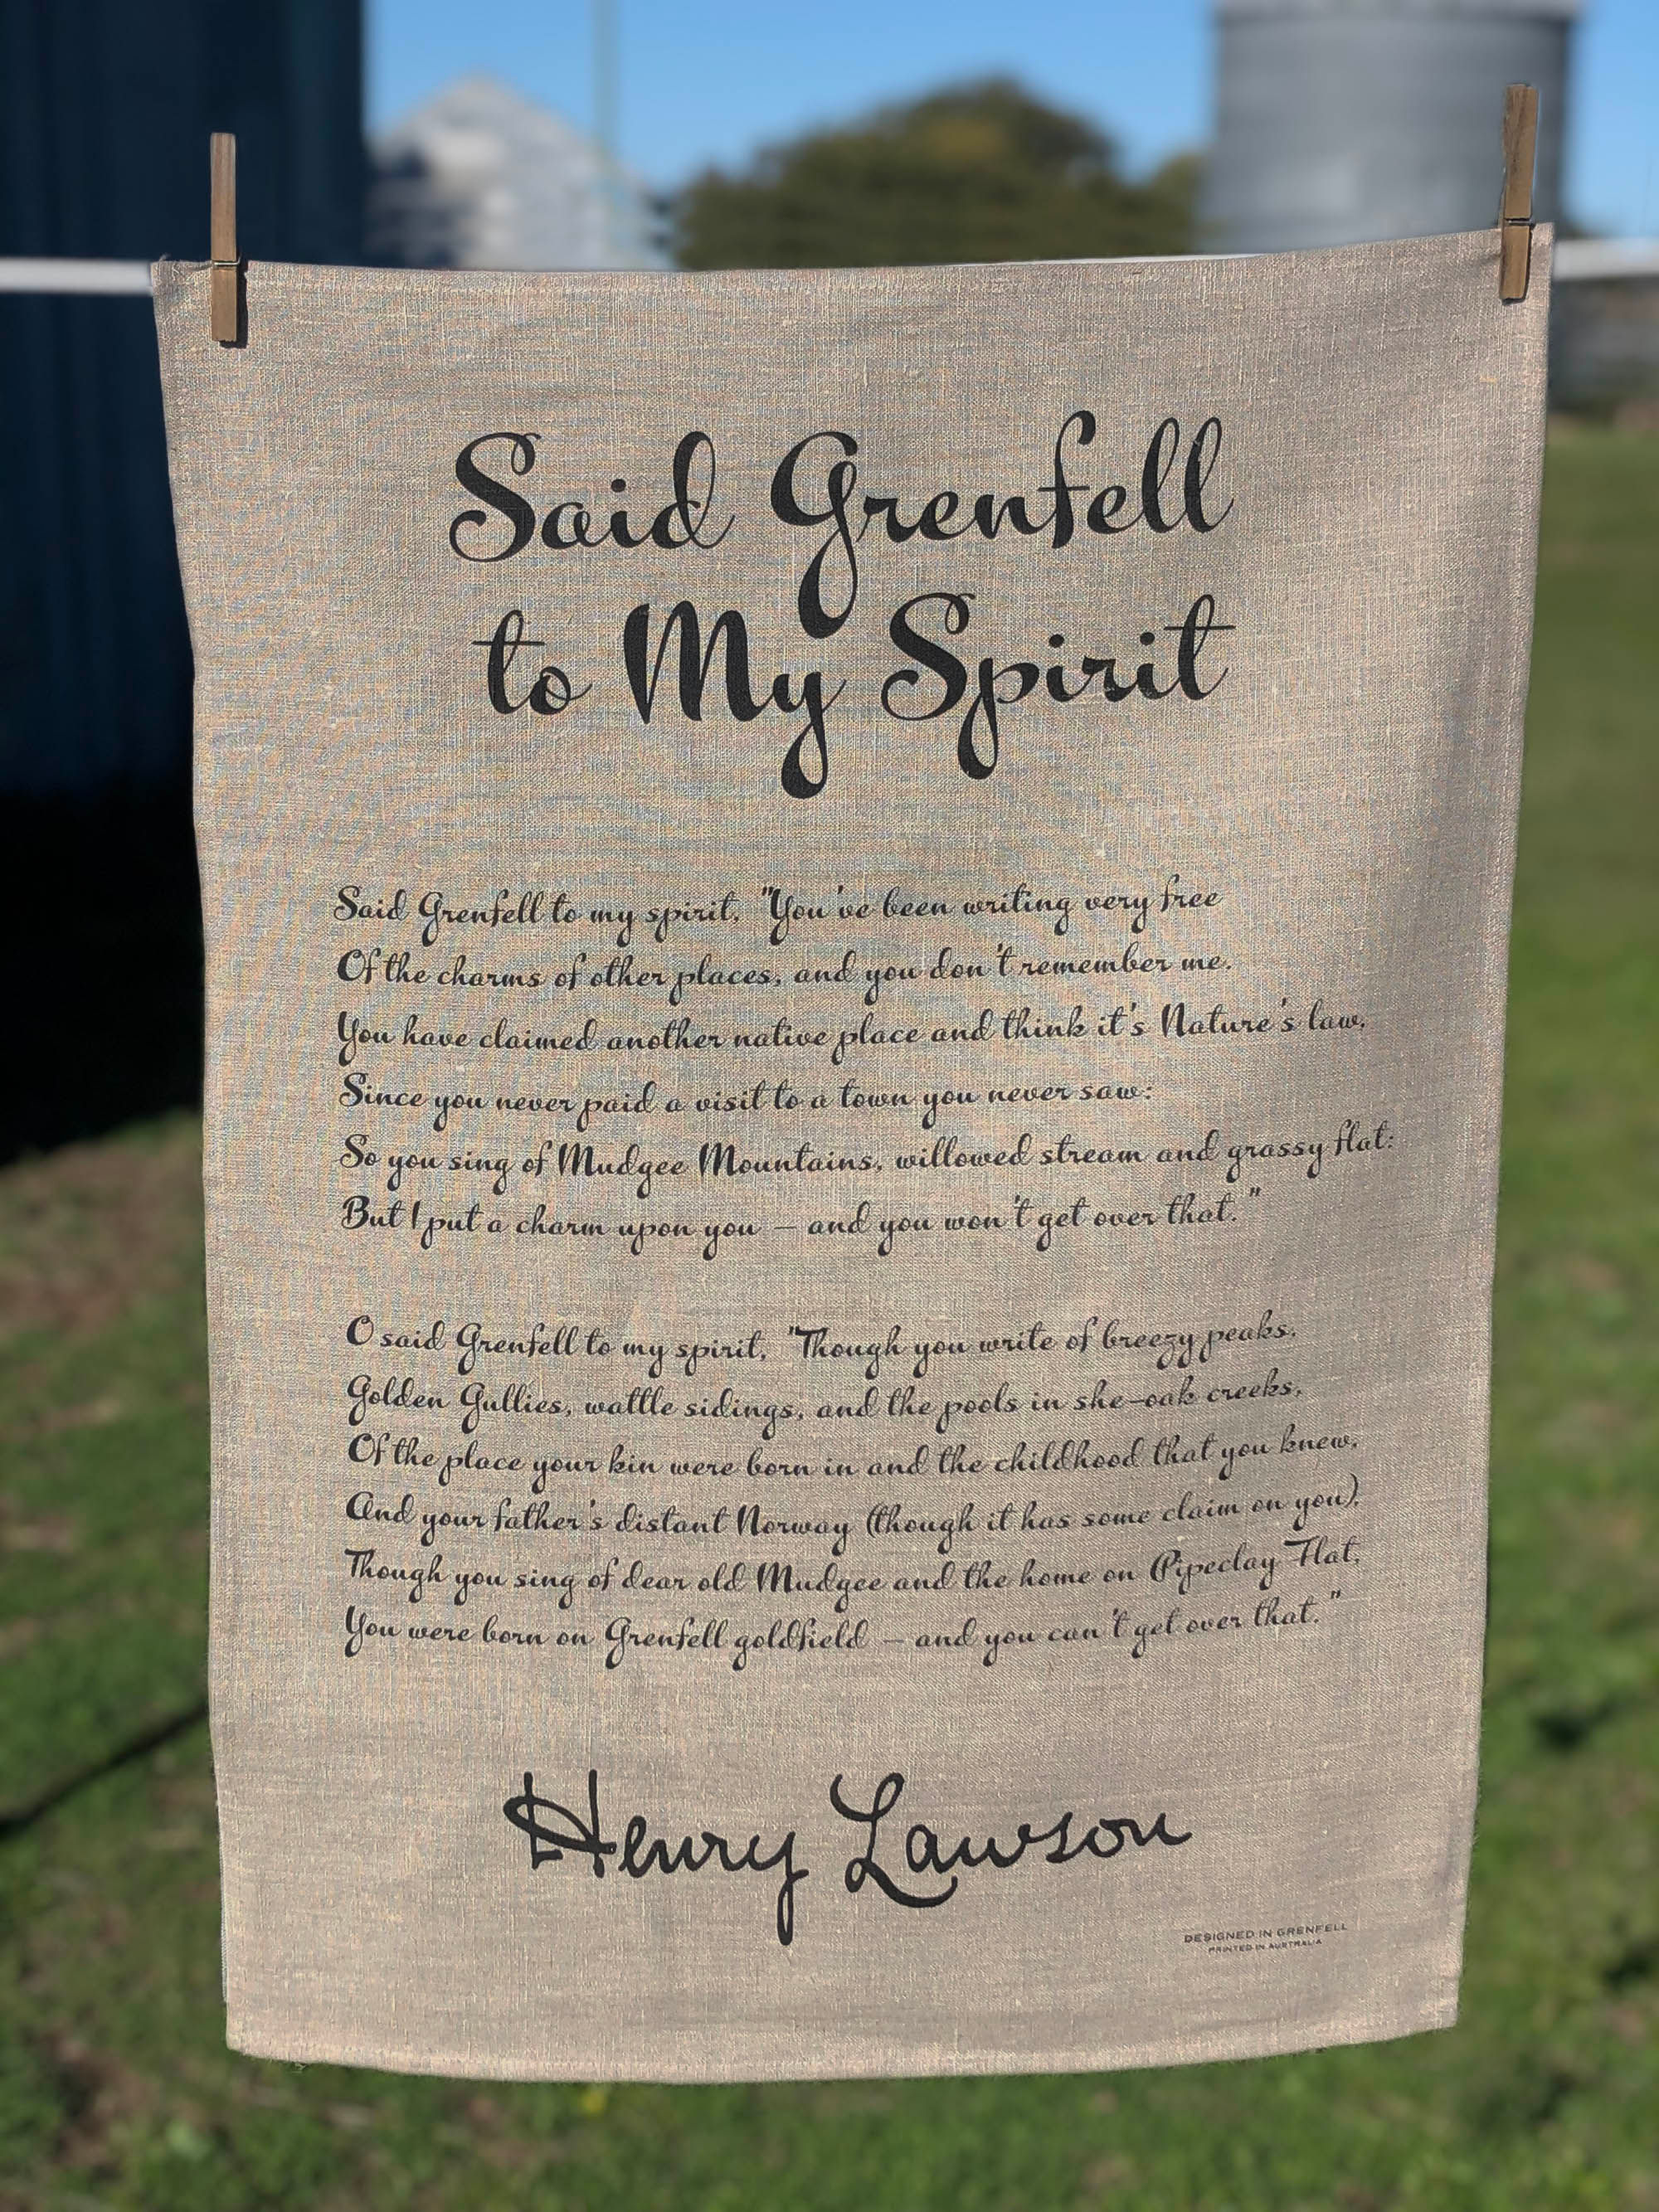 Said Grenfell
to My Spirit
Said Grenfell to my spirit, "You've been writing very free
Of the charms of other places, and you don't remember me.
You have claimed another native place and think it's Nature's law,
Since you never paid a visit to a town you never saw:
So you sing of Mudgee Mountains, willowed stream and grassy flat:
But I put a charm upon you – and you won't get over that."
O said Grenfell to my spirit, "Though you write of breezy peaks,
Golden Gullies, wattle sidings, and the pools in she-oak creeks,
Of the place your kin were born in and the childhood that you knew,
And your father's distant Norway (though it has some claim on you),
Though you sing of dear old Mudgee and the home on Pipeclay Flat,
You were born on Grenfell goldfield – and you can't get over that."
Henry Lawson
DESIGNED IN GRENFELL
PRINTED IN AUSTRALIA